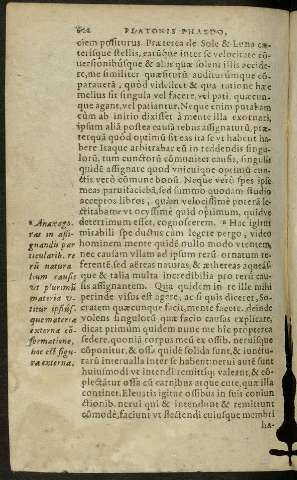 PLATONIS PHAEDO,
ciem positurus. Præterea de Sole & Luna cæ-
terisque stellis, earũque inter se velocitate cõ-
uersionibúsque & aliis quæ solent illis accide-
re, me similiter quæsiturũ auditurúmque cõ-
paraueră, quód videlicet & qua ratione hæc
melius sit singula vel facere, vel pati quæcun-
que agant, vel patiantur. Neque enim putabam
eum ab initio dixisset à mente illa exornari,
ipsum aliã postea cauſã rebus assignaturũ, præ-
terquã quód optimũ sit eas ita se vt habent ha-
bere Itaque arbitrabar eũ in reddendis singu-
lorũ, tum cunctorũ cõmuniter causis, singulis
quidẽ assignare quod vnicuique optimũ cun-
ctis verò cõmune bonũ. Neque verò spes ipse
meas paruifaciebã, sed summo quodam studio
acceptos libros, quàm velocissimè poterã le-
ctitabam: vt ocyssimè quid optimum, quidve
deterrimum esset, cognoscerem. * Hac igitur
mirabili spe ductus cum legere pergo, video
hominem mente quidẽ nullo modo vtentem,
nec causam vllam ad ipsum rerũ ornatum re-
ferentẽ, sed aëreas naturas, & æthereas aqueás-
que & talia multa incredibilia pro rerũ cau-
sis assignantem. Qua quidem in re ille mihi
perinde visus est agere, ac si quis diceret, So-
cratem quæcunque facit, mente facere: deinde
volens singulorũ quæ facio causas explicare,
dicat primum quidem nunc me hîc propterea
sedere, quoniã corpus meũ ex ossib. neruisque
cõponitur, & ossa quidẽ solida sunt, & iunctu-
rarũ interualla inter se habent: nerui autẽ sunt
huiusmodi vt intendi remittíq; valeãt, & cõ-
plectãtur ossa cũ carnibus atque cute, quæ illa
continet. Eleuatis igitur ossibus in suis coniun
ctionib. nerui qui & intendunt & remittunt
cõmodè, faciunt vt flectendi cuiusque membri
ha-
* Anaxago-
ras in assi-
gnandis par
ticularib. re
rũ natura
lium causis
vt plurimũ
materia v-
titur ipsiús-
que materiæ
externa cõ-
formatione,
hoc est figu
ra externa.